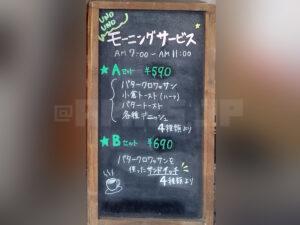 UNO
UNO
モーニングサービス
AM 7:00 ~ AM 11:00
★Aセット ¥590
バタークロワッサン
小倉トースト(ハーフ)
バタートースト
各種デニッシュ
4種類より
★Bセット ¥690
バタークロワッサンを
使ったサンドイッチ
4種類より